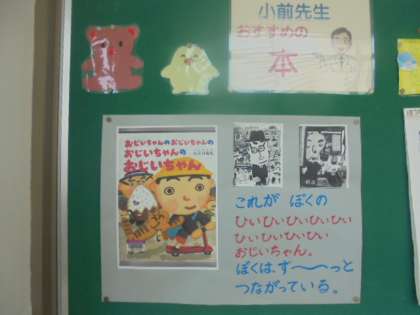 小前先生
おすすめの
本
おじいちゃんのおじいちゃんの
おじいちゃんの
おじいちゃん
これが ぼくの
ひいひいひいひいひい
ひいひいひいひい
おじいちゃん。
ぼくは、ず〜〜っと
つながっている。